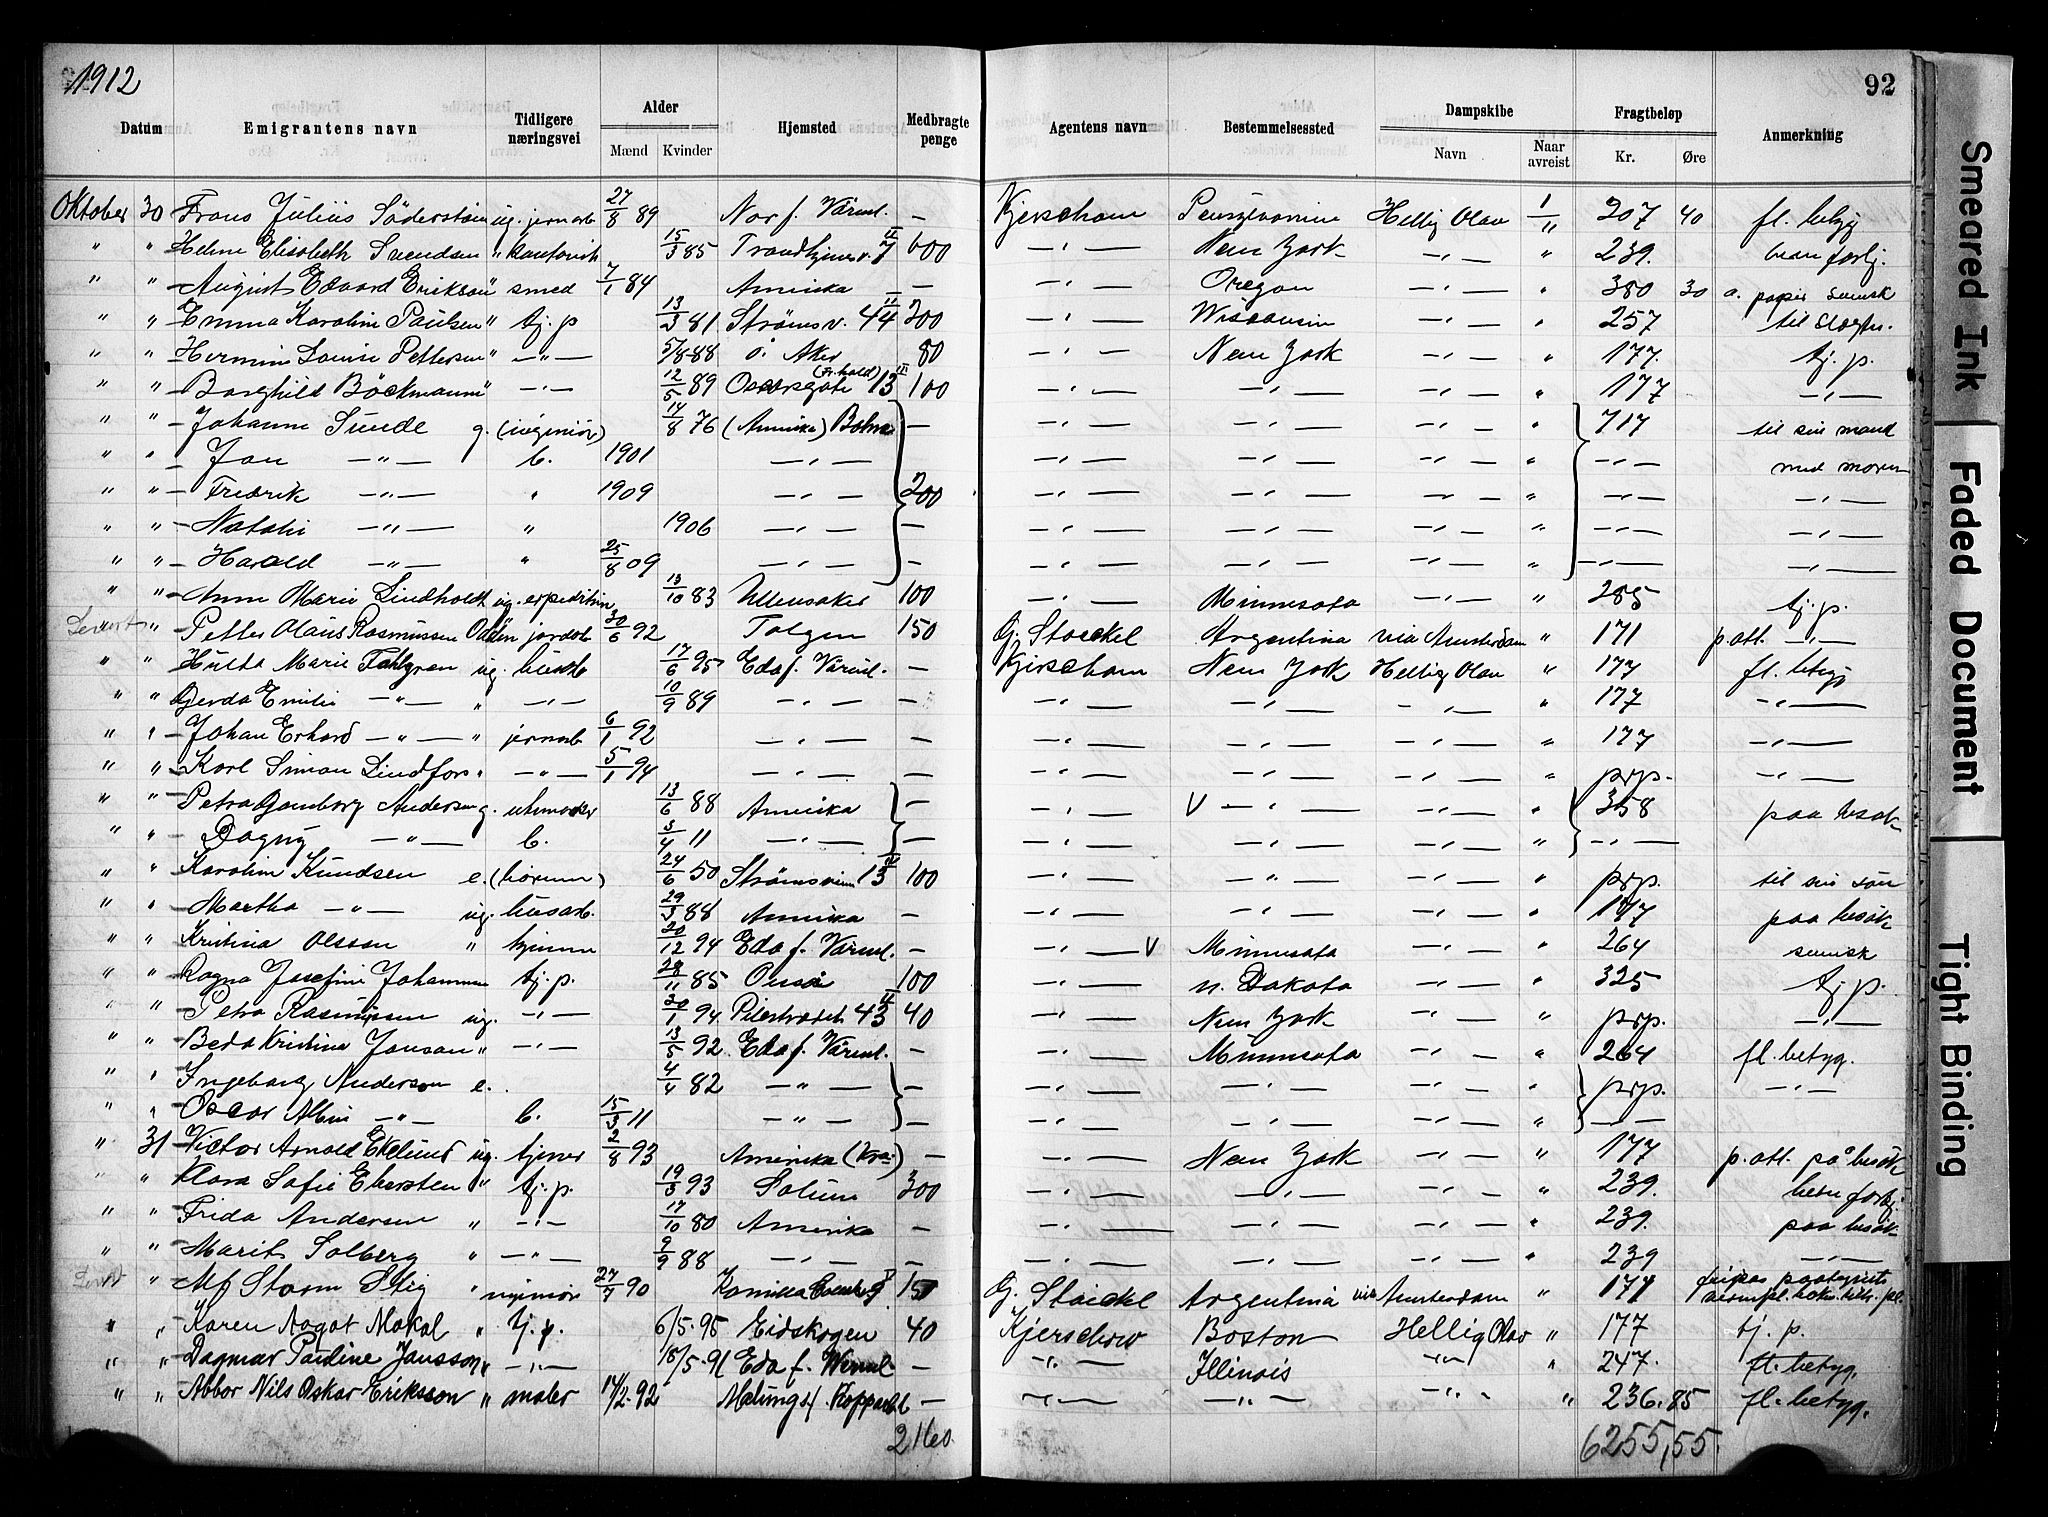 1912
92
Datum Emigrantens navn Tidligere næringsvei Alder Mænd Kvinder Hjemsted Medbragte penge Agentens navn Bestemmelsessted Dampskibe Navn Naar avreist Fragtbeløp Kr. Øre Anmerkning
Oktober 30 Frans Julius Söderström ug. jernarb 27/8 89 Nor f. Värml. — Kjerschow Pensylvanien Hellig Olav 1/11 207 40 fl. betyg
" " Helene Elisabeth Svendsen " kontorist 15/3 85 Trondhjemsv. 7 II 600 —"— New York —"— " 239.
" " August Edvard Eriksson " smed 7/1 84 Amerika — —"— Oregon —"— " 380 30 a. papir svensk
" " Emma Karoline Paulsen " tj. p 13/3 81 Strømsv. 44 II 200 —"— Wisconsin —"— " 257 til
" " Hermine Louise Pettersen " —"— 5/8 88 Ö. Aker 80 —"— New York —"— " 177. tj. p.
" " Borghild Böckmann " —"— 12/5 89 Oscarsgate 13 III 100 —"— —"— —"— " 177 —"—
" " Johanne Sunde g. (ingeniör) 14/8 76 (Amerika) — —"— —"— —"— " 717 til sin mand
" " Jon —"— b. 1901 —"— —"— —"— —"— " —"— med moren
" " Fredrik —"— " 1909 —"— 200 —"— —"— —"— " —"— —"—
" " Natalie —"— " 1906 —"— — —"— —"— —"— " —"— —"—
" " Harald —"— " 25/8 09 —"— — —"— —"— —"— " —"— —"—
" " Anna Marie Lindholdt ug. expeditrice 13/10 83 Ullensaker 100 —"— Minnesota —"— " 285 tj. p.
" " Petter Olaus Rasmussen Odden jordarb 30/6 92 Tolgen 150 G. Stoeckel Argentina via Amsterdam " 171 p. att. —"—
" " Hulda Marie Fahlgren ug. husarb 17/6 95 Eda f. Värml. — Kjerschow New York Hellig Olav " 177 fl. betyg
" " Gerda Emilie —"— " —"— 10/9 89 —"— — —"— —"— —"— " 177 —"—
" " Johan Erhard —"— " jernarb 6/1 92 —"— — —"— —"— —"— " 177 —"—
" " Karl Simon Lindfors " —"— 5/1 94 —"— — —"— —"— —"— " prp. —"—
" " Petra Gamborg Andersen g. urmaker 13/6 88 Amerika — —"— V —"— —"— " 358 paa besøk
" " Dagny —"— b. 3/4 11 —"— — —"— —"— —"— " —"—
" " Karoline Knudsen e. 24/6 50 Strømsveien 13 IV 100 —"— —"— —"— " prp. til sin søn
" " Martha —"— ug. husarb. 29/3 88 Amerika — —"— —"— —"— " 177 paa besøk
" " Kristina Olsson " 20/12 94 Eda f. Värml. — —"— V Minnesota —"— " 264 svensk
" " Ragna Josefine Johannesen tj. p. 28/11 85 Onsø 100 —"— n. Dakota —"— " 325 tj. p.
" " Petra Rasmussen ug. —"— 20/1 94 Pilestrædet 43 II 40 —"— New York —"— " prp. —"—
" " Beda Kristina Jonson " —"— 13/5 92 Eda f. Värml. — —"— Minnesota —"— " 264 fl. betyg.
" " Ingeborg Anderson e. 4/4 82 —"— — —"— —"— —"— " prp. —"—
" " Oscar Albin —"— b. 15/3 11 —"— — —"— —"— —"— " —"—
" 31 Victor Arnold Ekelund ug. tjener 2/8 93 Amerika (Kra.) — —"— New York —"— " 177 p. att. på besök
" Klara Sofie Ebersten " tj. p. 19/3 93 Solum 300 —"— —"— —"— " 239.
" " Frida Andersen " —"— 17/10 80 Amerika — —"— —"— —"— " 239. paa besøk
" " Marit Solberg " —"— 9/9 88 —"— — —"— —"— —"— " 239 —"—
" Alf Storm Stig " ingeniör 27/7 90 150 G. Stoeckel Argentina via Amsterdam " 171
" " Karen Aagot Møkol " tj. p. 6/5.95 Eidskogen 40 Kjerschow Boston Hellig Olav " 177 tj. p.
" " Dagmar Pauline Jansson " —"— 18/5.91 Eda f. Werml — —"— Illinois —"— " 247. fl. betyg.
" " Abbor Nils Oskar Eriksson " maler 14/2.92 Malungs f. Kopparbl — —"— —"— —"— " 236.85 fl. betyg.
2160. 6255,55.
Smeared Ink
Faded Document
Tight Binding